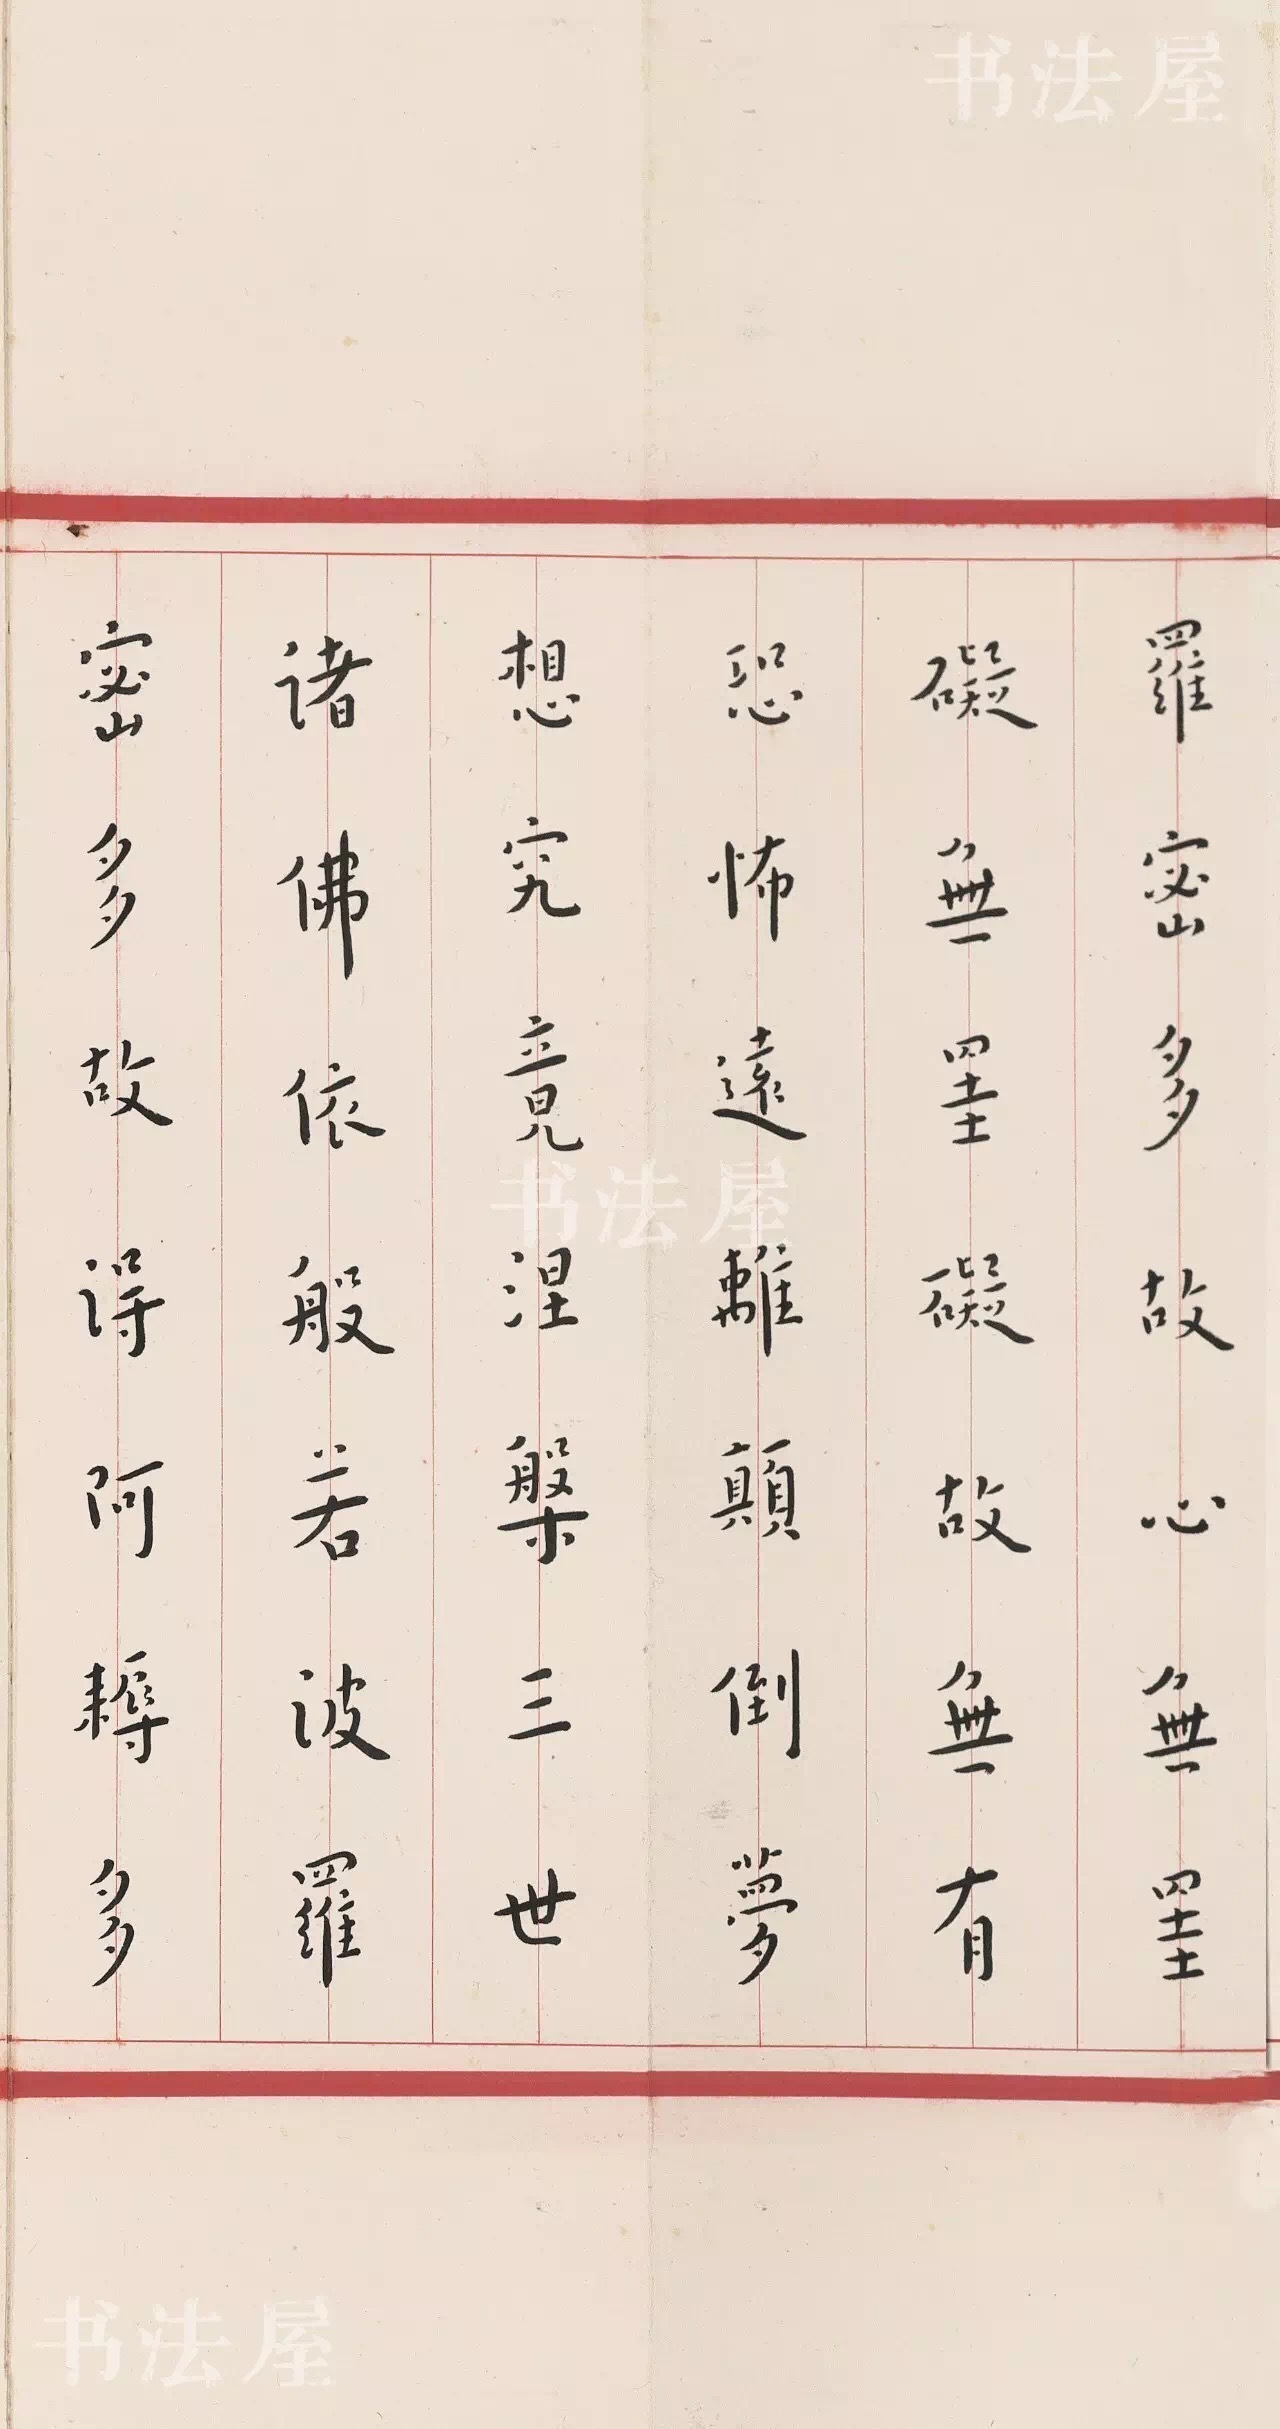 书法屋
羅密多故心無罣
礙無罣礙故無有
恐怖遠離顛倒夢
想究竟涅槃三世
諸佛依般若波羅
密多故得阿耨多
书法屋
书法屋